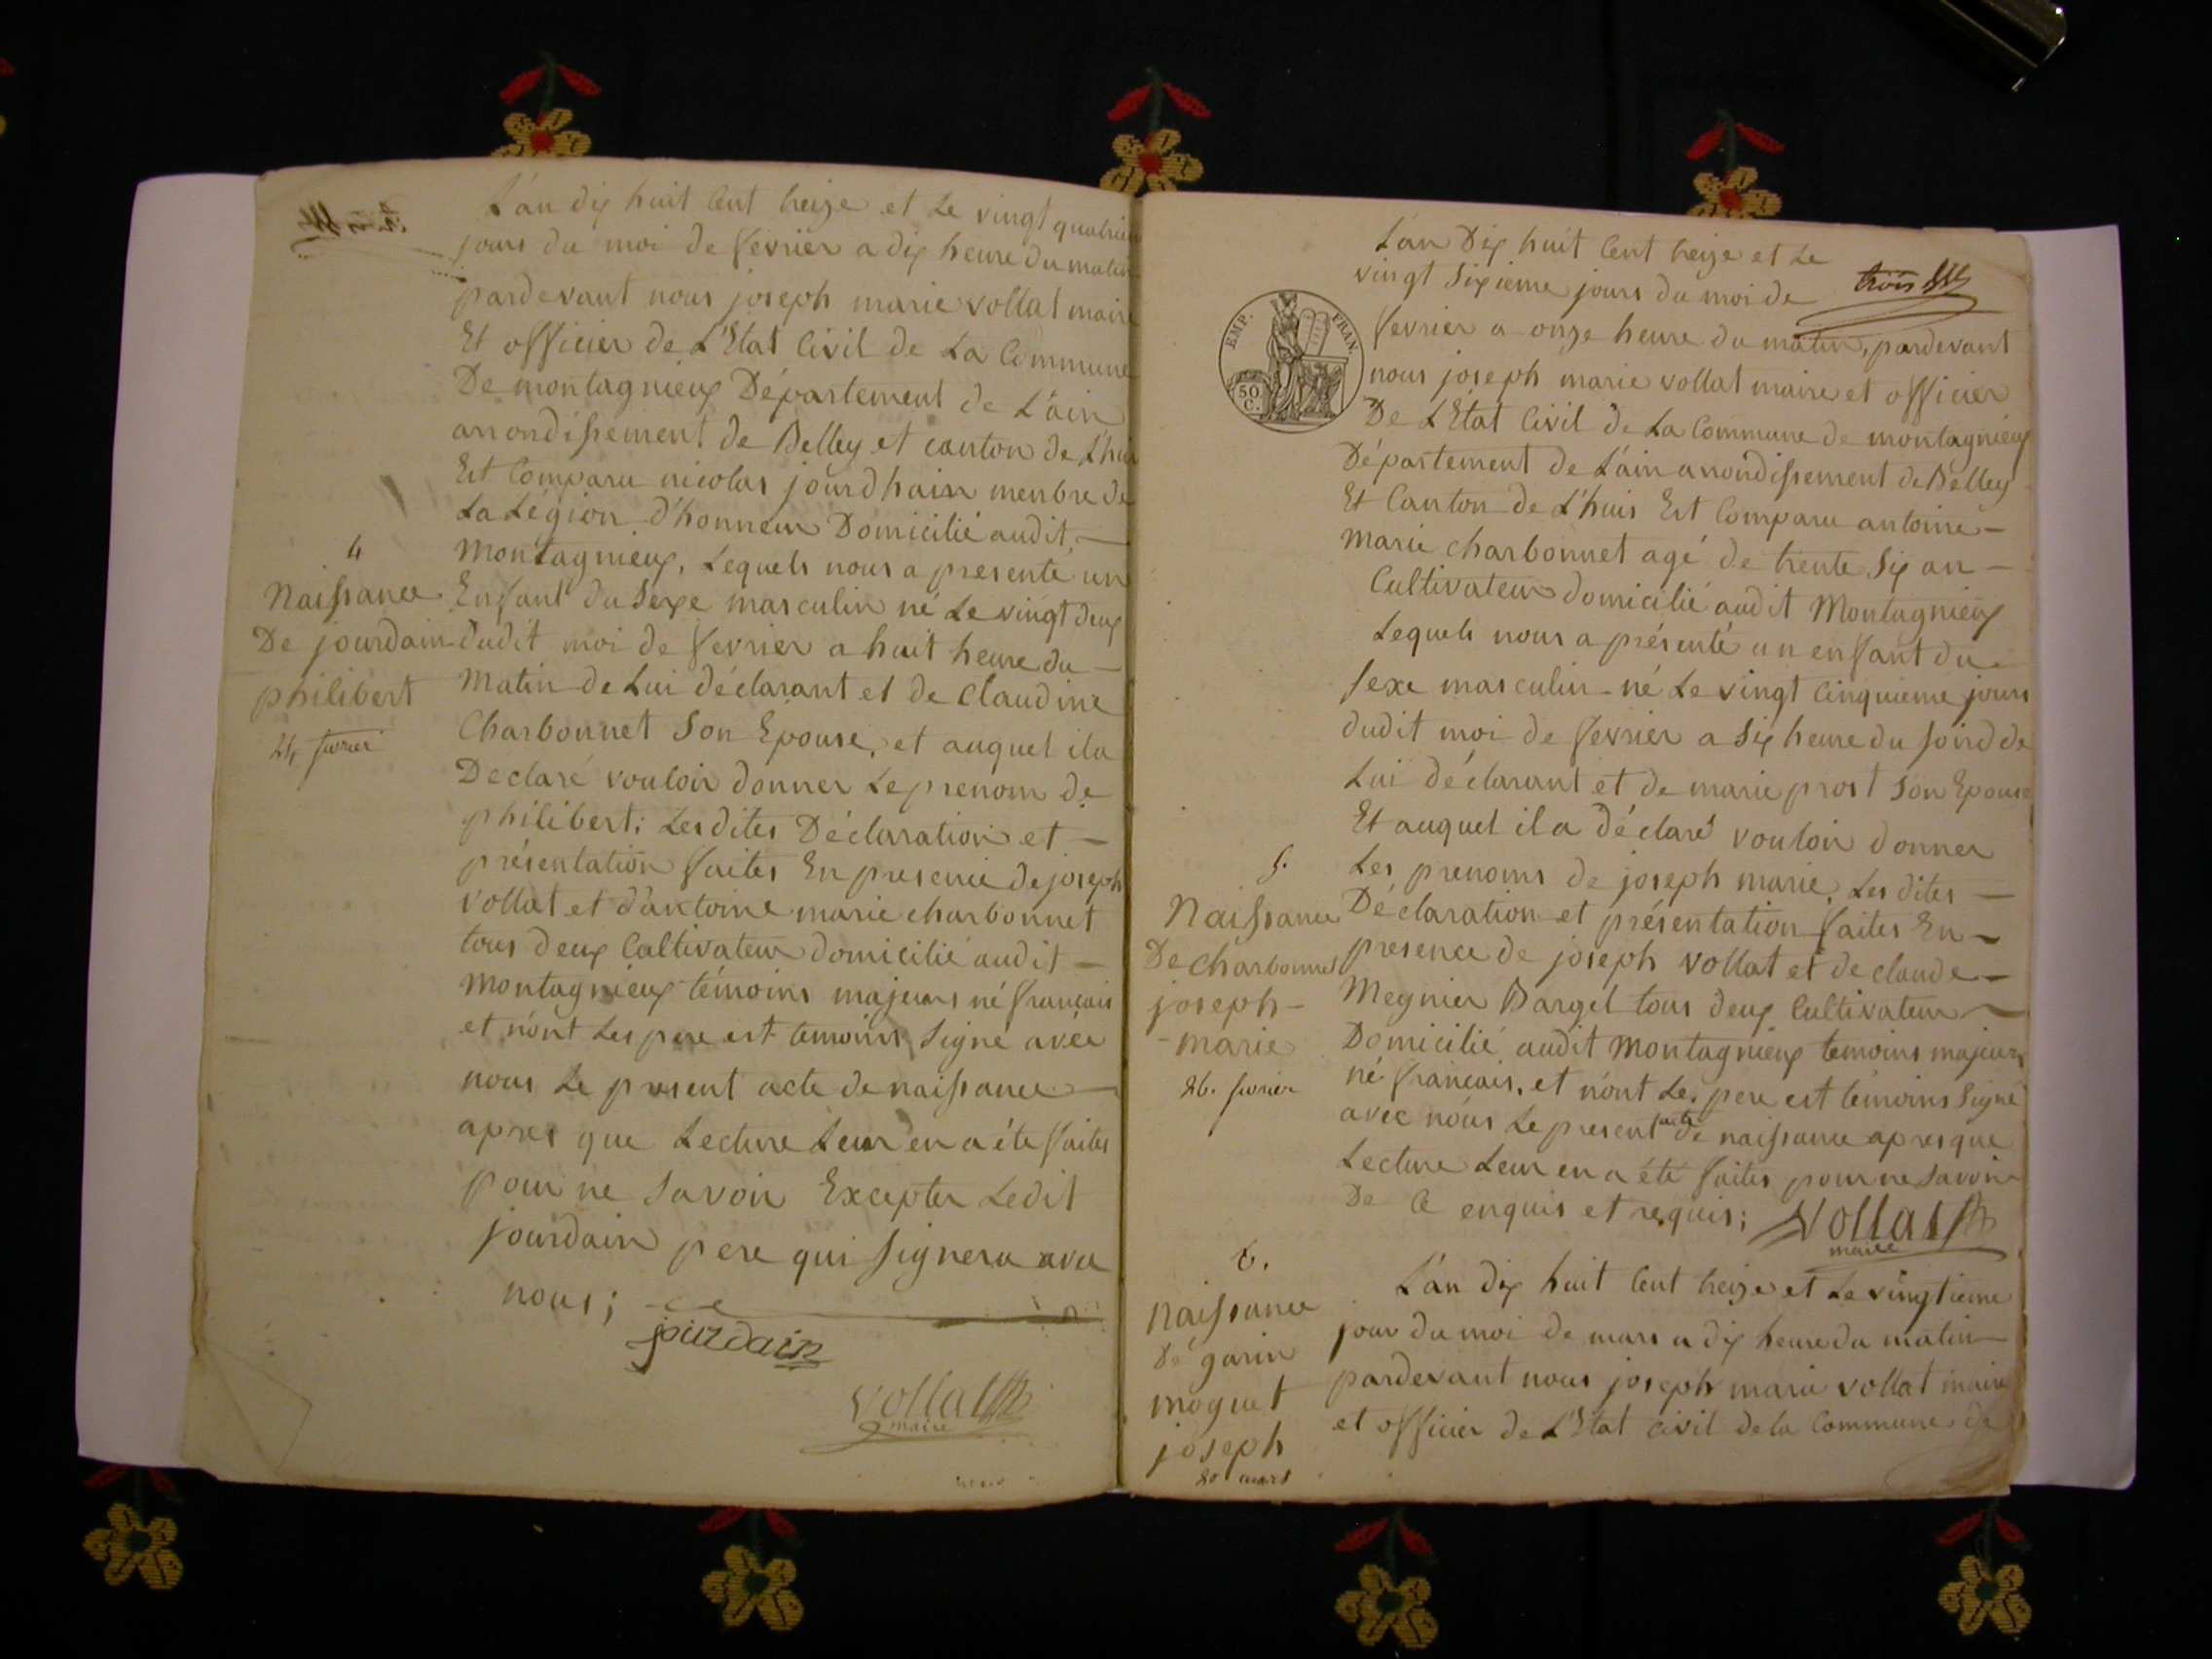 L'an dix huit Cent treize et Le vingt quatrieme
jours du moi de fevrier a dix heure du matin
pardevant nous joseph marie vollat maire
Et officier de L'Etat Civil de La Commune
De montagnieux Département de L'ain
arrondissement de Belley et canton de L'huis
Est Comparu nicolas jourdhain menbre de
La Légion d'honneur Domicilié audit —
Montagnieux, Lequels nous a presenté un
Enfant du Sexe masculin né Le vingt deux
dudit moi de fevrier a huit heure du —
Matin de Lui déclarant et de Claudine
Charbonnet Son Epouse, et auquel il a
Declaré vouloir donner Le prenom de
philibert; Les dites Déclaration et —
présentation faites En presence de joseph
vollat et d'antoine marie charbonnet
tous deux Cultivateur domicilié audit —
Montagnieux témoins majeurs né francais
et n'ont Les pere est temoins Signé avec
nous Le present acte de naissance —
apres que Lecture Leur en a été faites
pour ne Savoir Excepter Ledit
jourdain pere qui Signera avec
nous;
jourdain
vollat
maire
4
Naissance
De jourdain
philibert
24 fevrier
L'an Dix huit Cent treize et Le
vingt Sixieme jours du moi de
trois
fevrier a onze heure du matin, pardevant
EMP. FRAN.
50 C.
nous joseph marie vollat maire et officier
De L'Etat Civil de La Commune de montagnieux
Département de L'ain arrondissement de Belley
Et Canton de L'huis Est Comparu antoine —
Marie charbonnet agé de trente Six an —
Cultivateur domicilié audit Montagnieux
Lequels nous a présenté un enfant du
Sexe masculin né Le vingt Cinquieme jours
dudit moi de fevrier a Six heure du soird de
Lui déclarant et de marie prost Son Epouse
Et auquel il a déclaré vouloir donner
Les prenoms de joseph marie, Les dites —
Déclaration et présentation faites En —
presence de joseph vollat et de claude —
Megnier Bargel tous deux Cultivateur —
Domicilié audit Montagnieux temoins majeurs
né francais, et n'ont Les pere est témoins Signé
avec nous Le present acte de naissance apres que
Lecture Leur en a été faites pour ne Savoir
De Ce enquis et requis;
vollat
maire
5.
Naissance
De Charbonnet
joseph -
- marie
26. fevrier
L'an dix huit Cent treize et Le vingtieme
jour du moi de mars a dix heure du matin
pardevant nous joseph marie vollat maire
et officier de L'Etat Civil de la Commune de
6.
Naissance
De garin
moguet
joseph
20 mars